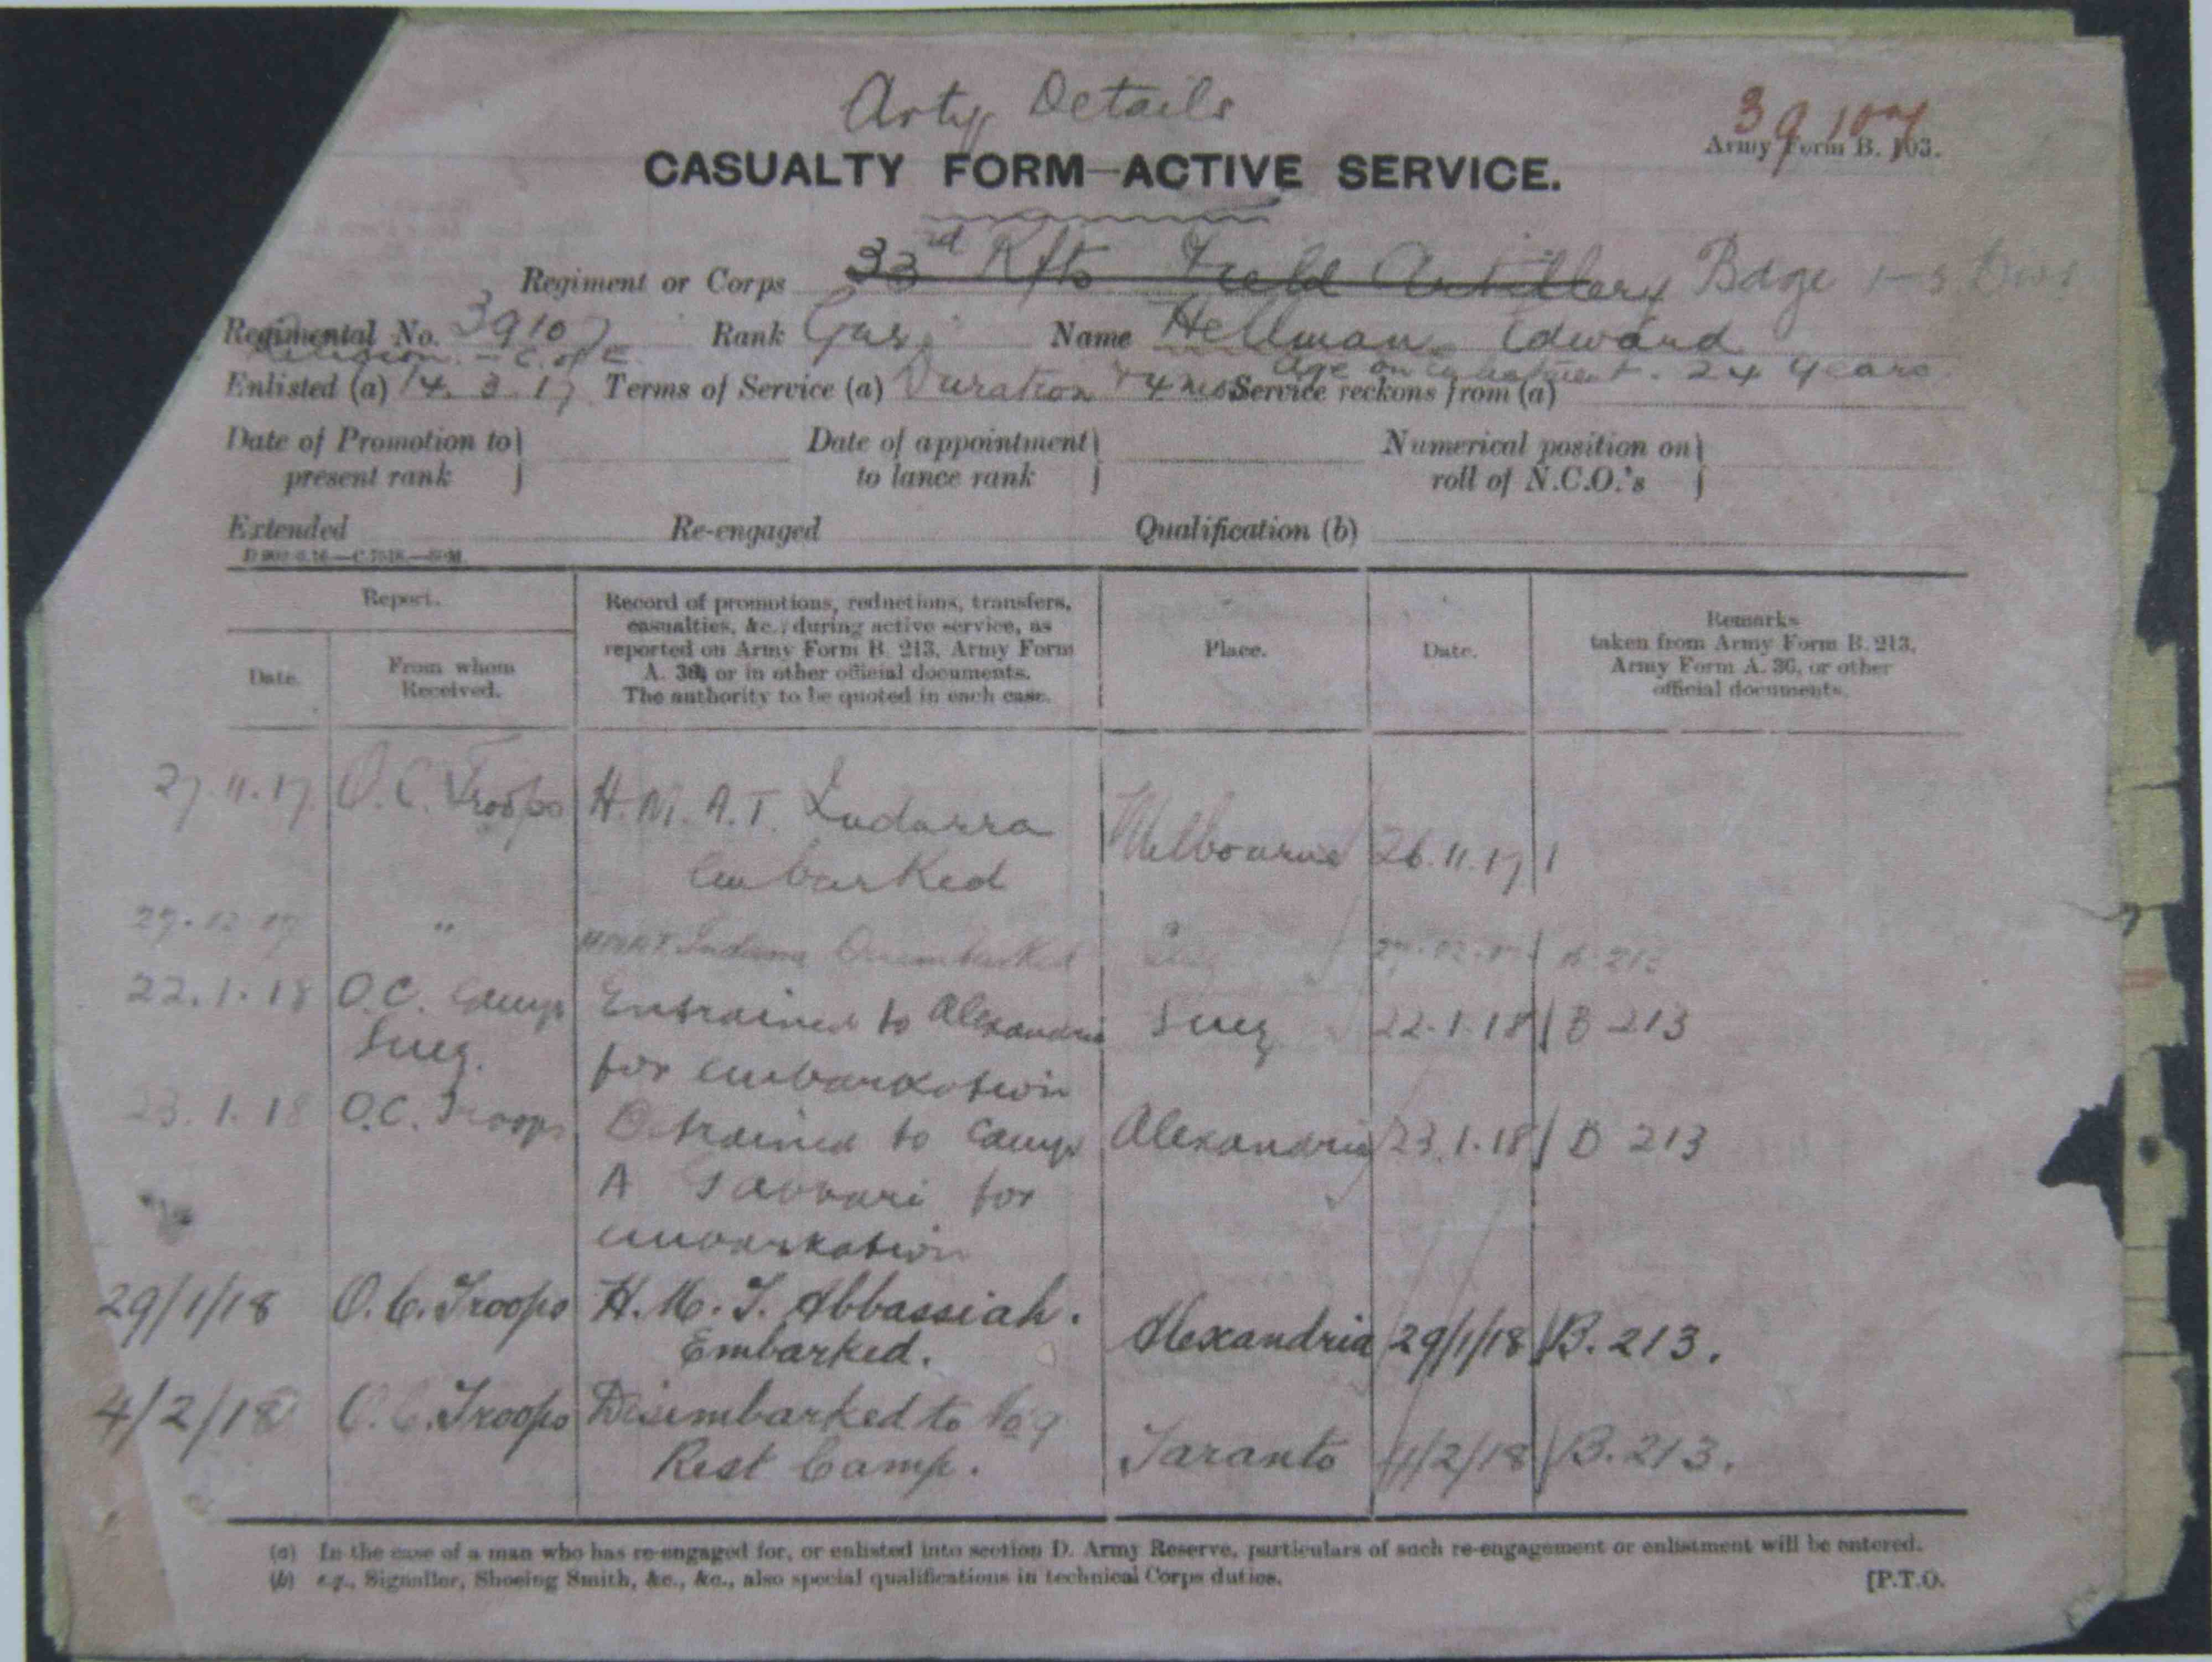 Arty Details
39107
Army Form B. 103.
CASUALTY FORM—ACTIVE SERVICE.
Regiment or Corps 33rd Rfts Field Artillery Bdge
Regimental No. 39107 Rank Gnr. Name Hellman Edward
Religion - C. of E. Age on enlistment - 24 years
Enlisted (a) 14.3.17 Terms of Service (a) Duration + 4 mos Service reckons from (a)
Date of Promotion to present rank
Date of appointment to lance rank
Numerical position on roll of N.C.O.'s
Extended Re-engaged Qualification (b)
Report.
Date.
From whom Received.
Record of promotions, reductions, transfers,
casualties, &c., during active service, as
reported on Army Form B. 213, Army Form
A. 36, or in other official documents.
The authority to be quoted in each case.
Place.
Date.
Remarks
taken from Army Form B. 213,
Army Form A. 36, or other
official documents.
27.11.17 O.C. Troops H.M.A.T. Indarra
embarked Melbourne 26.11.17
27.12.17 " Indarra Disembarked Suez 27.12.17 B 213
22.1.18 O.C. Camp Entrained to Alexandria Suez 22.1.18 B 213
Suez. for embarkation
23.1.18 O.C. Troops Detrained to Camp Alexandria 23.1.18 B 213
A Gabbari for
embarkation
29/1/18 O.C. Troops H.M.T. Abbassiah. Alexandria 29/1/18 B. 213.
Embarked.
4/2/18 O.C. Troops Disembarked to No 9 Taranto 4/2/18 B. 213.
Rest Camp.
(a) In the case of a man who has re-engaged for, or enlisted into section D. Army Reserve, particulars of such re-engagement or enlistment will be entered.
(b) e.g., Signaller, Shoeing Smith, &c., &c., also special qualifications in technical Corps duties.
[P.T.O.